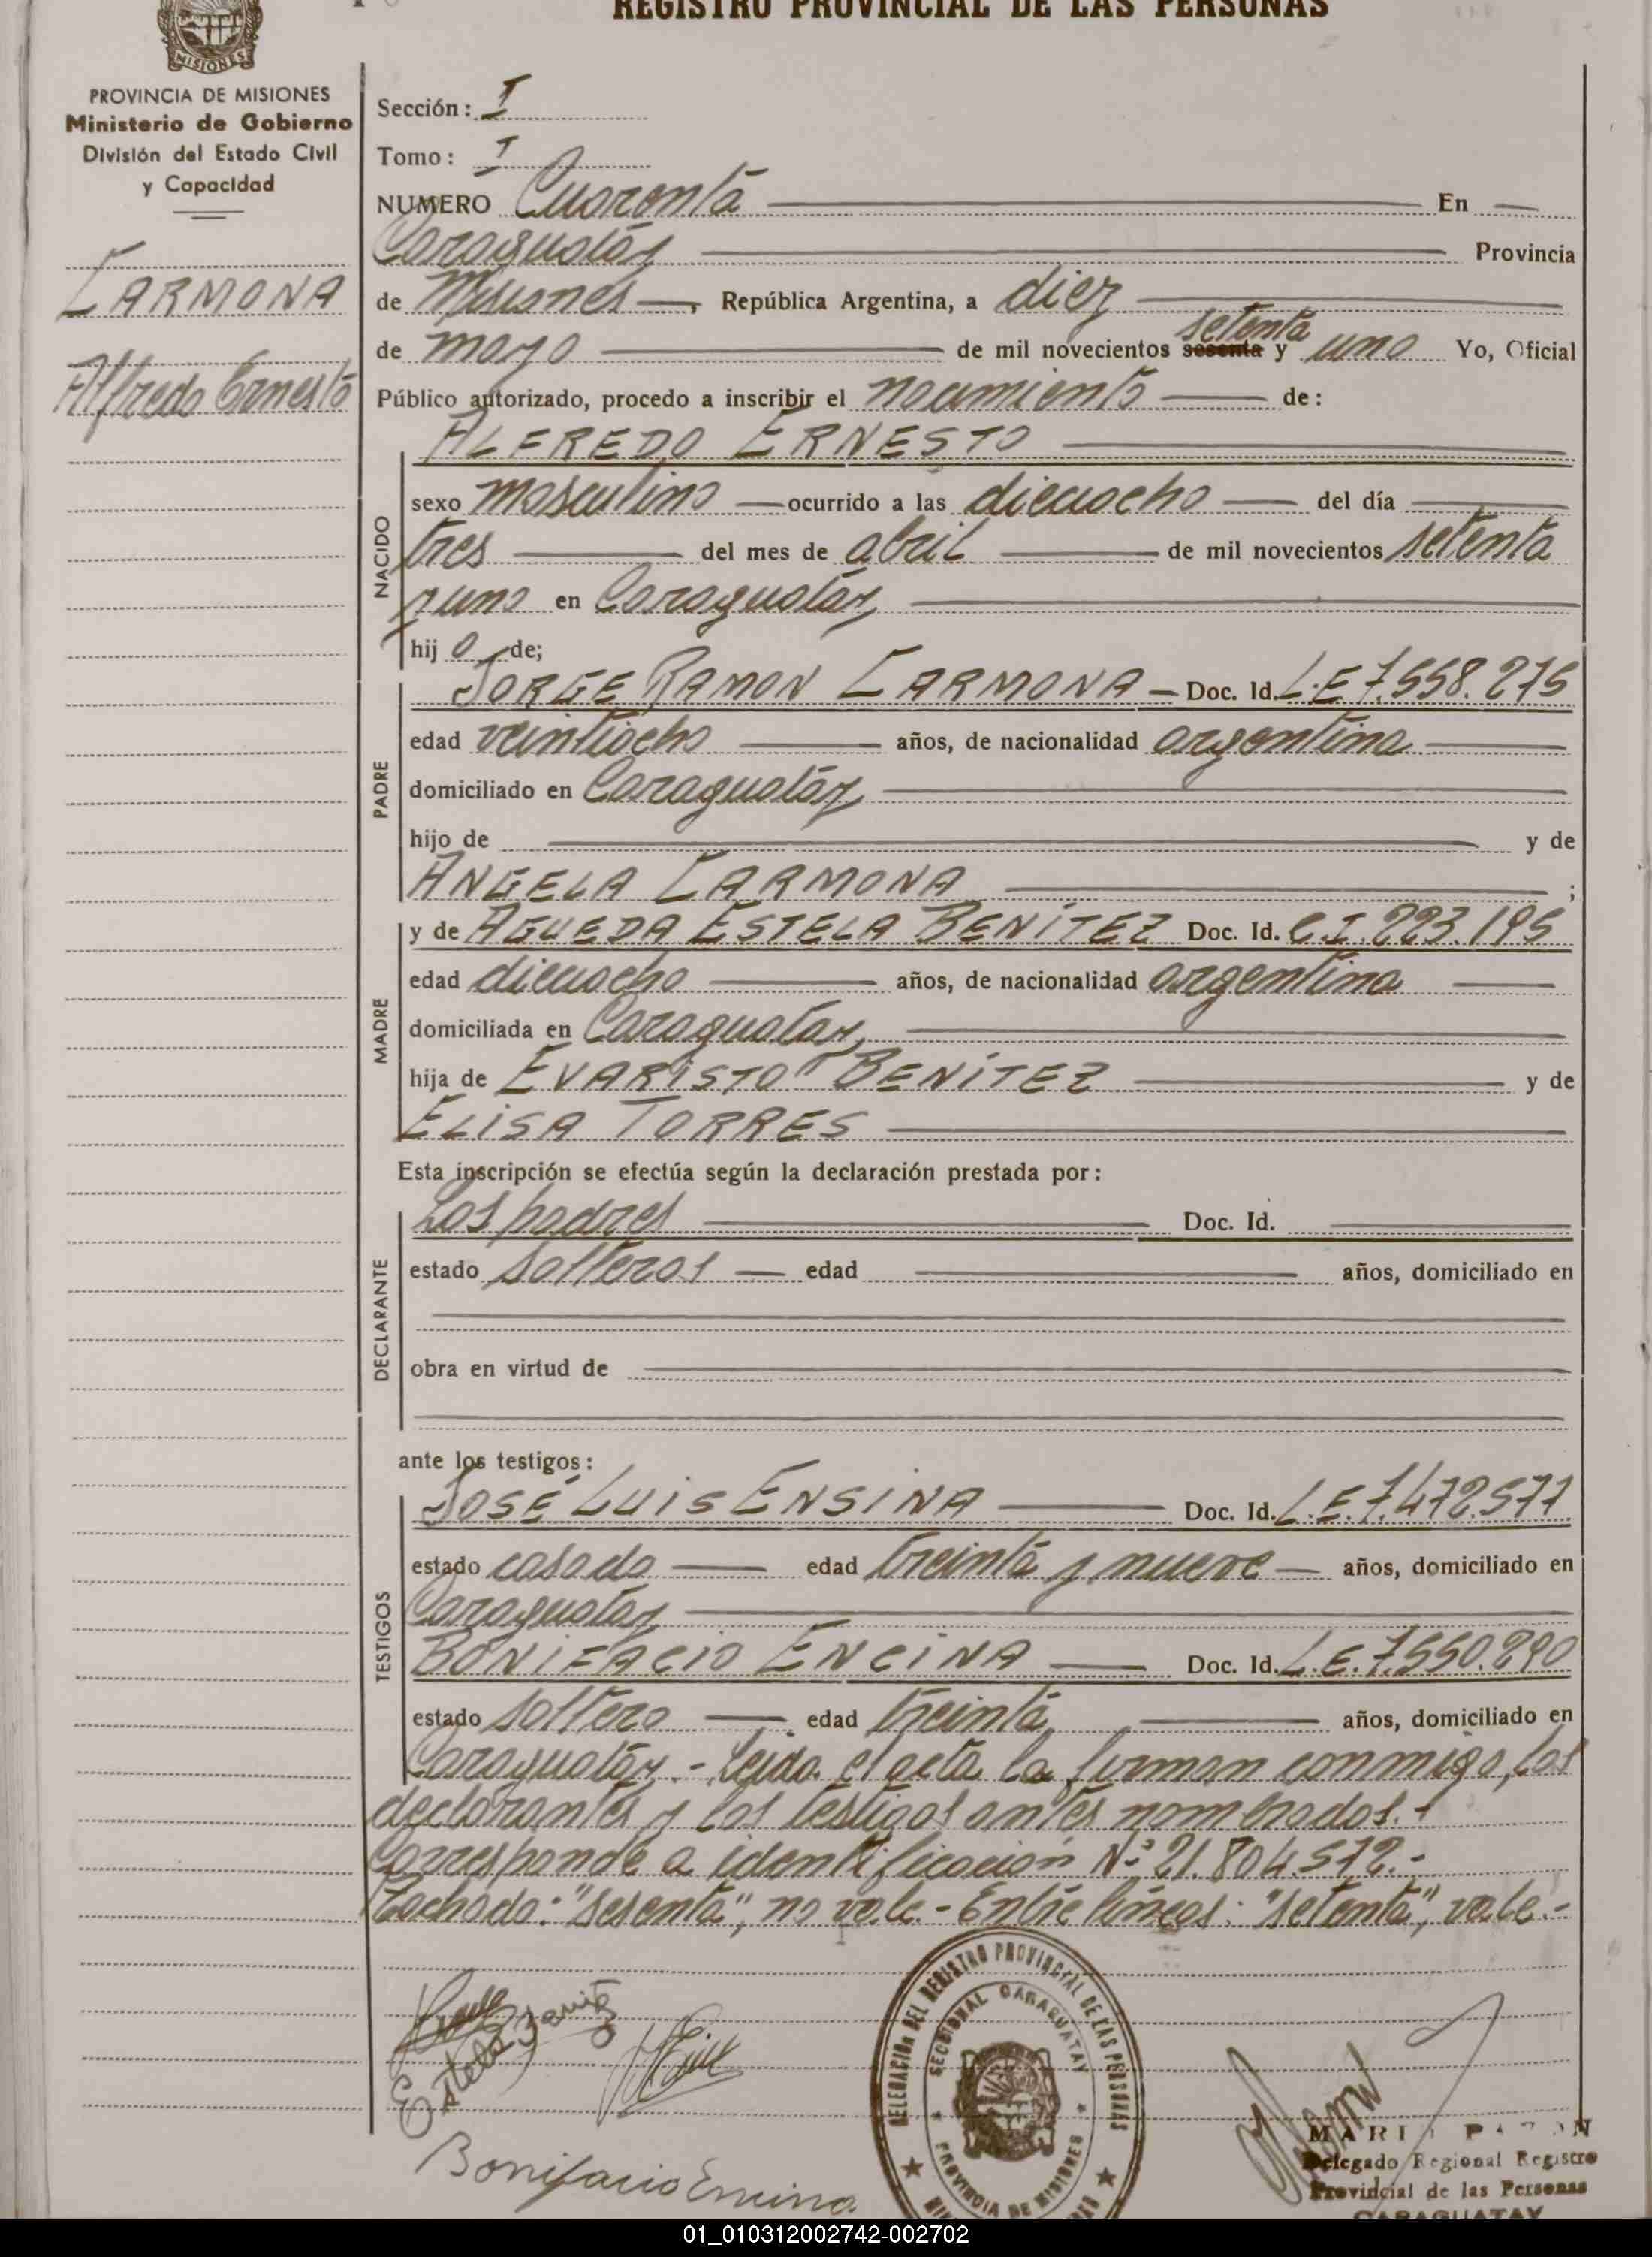 REGISTRO PROVINCIAL DE LAS PERSONAS
MISIONES
PROVINCIA DE MISIONES
Ministerio de Gobierno
División del Estado Civil
y Capacidad
CARMONA
Alfredo Ernesto
Sección: I
Tomo: I
NUMERO Cuarenta En
Caraguatáy Provincia
de Misiones, República Argentina, a diez
setenta
de mayo de mil novecientos sesenta y uno Yo, Oficial
Público autorizado, procedo a inscribir el nacimiento de:
ALFREDO ERNESTO
NACIDO
sexo masculino ocurrido a las dieciocho del día
tres del mes de abril de mil novecientos setenta
y uno en Caraguatáy
hijo de;
PADRE
JORGE RAMON CARMONA Doc. Id. L.E 7.558.275
edad veintiocho años, de nacionalidad argentina
domiciliado en Caraguatáy
hijo de y de
ANGELA CARMONA ;
MADRE
y de AGUEDA ESTELA BENÍTEZ Doc. Id. C.I. 223.195
edad dieciocho años, de nacionalidad argentina
domiciliada en Caraguatay
hija de EVARISTO BENÍTEZ y de
ELISA TORRES
Esta inscripción se efectúa según la declaración prestada por:
DECLARANTE
Los padres Doc. Id.
estado solteros edad años, domiciliado en
obra en virtud de
ante los testigos:
TESTIGOS
JOSÉ LUIS ENSINA Doc. Id. L.E. 7.472.577
estado casado edad treinta y nueve años, domiciliado en
Caraguatay
BONIFACIO ENCINA Doc. Id. L.E. 7.550.290
estado soltero edad treinta años, domiciliado en
Caraguatáy.- Leída el acta la firman conmigo, los
declarantes y los testigos antes nombrados.-
Corresponde a identificación Nº 21.804.572.-
Tachado: "sesenta", no vale.- Entre líneas: "setenta", vale.-
DELEGACIÓN DEL REGISTRO PROVINCIAL DE LAS PERSONAS
SECCIONAL CARAGUATAY
PROVINCIA DE MISIONES
Estela Benitez
Bonifacio Encina
Delegado Regional Registro
Provincial de las Personas
CARAGUATAY
01_010312002742-002702